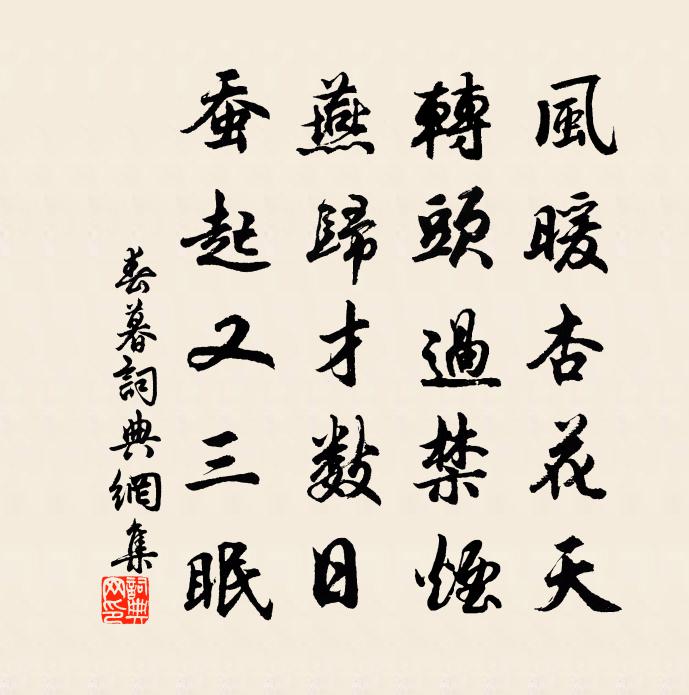 風暖杏花天
轉頭過禁煙
燕歸才數日
蚕起又三眠
春暮詞典網集
詞典网印